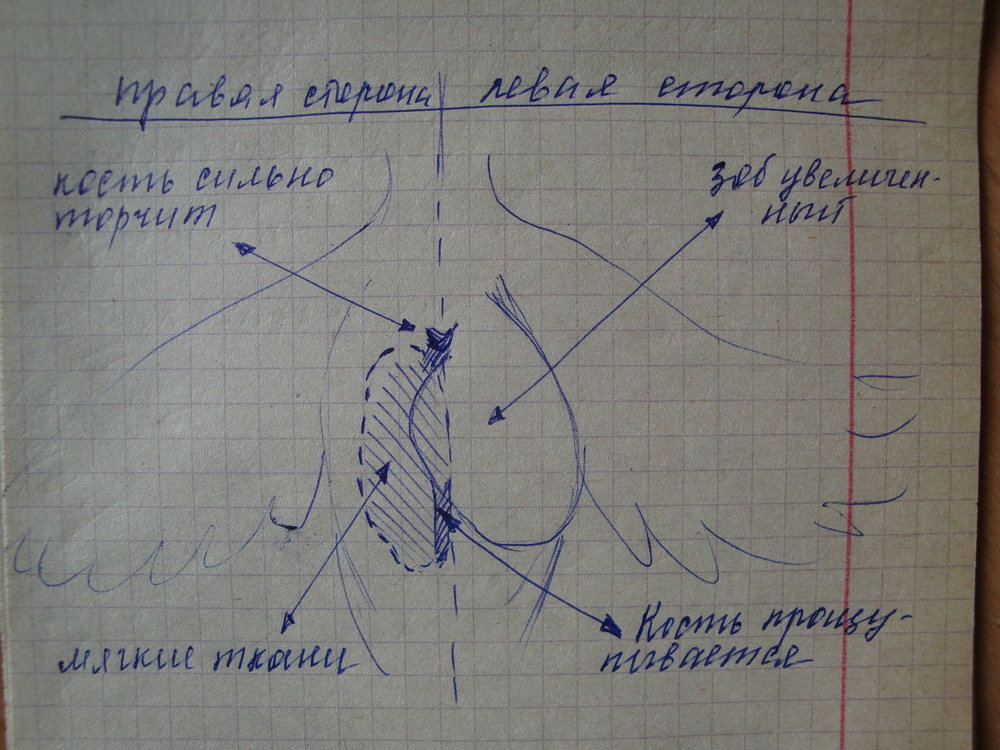 правая сторона левая сторона
кость сильно
торчит
зоб увеличен-
ный
мягкие ткани
Кость прощу-
пывается